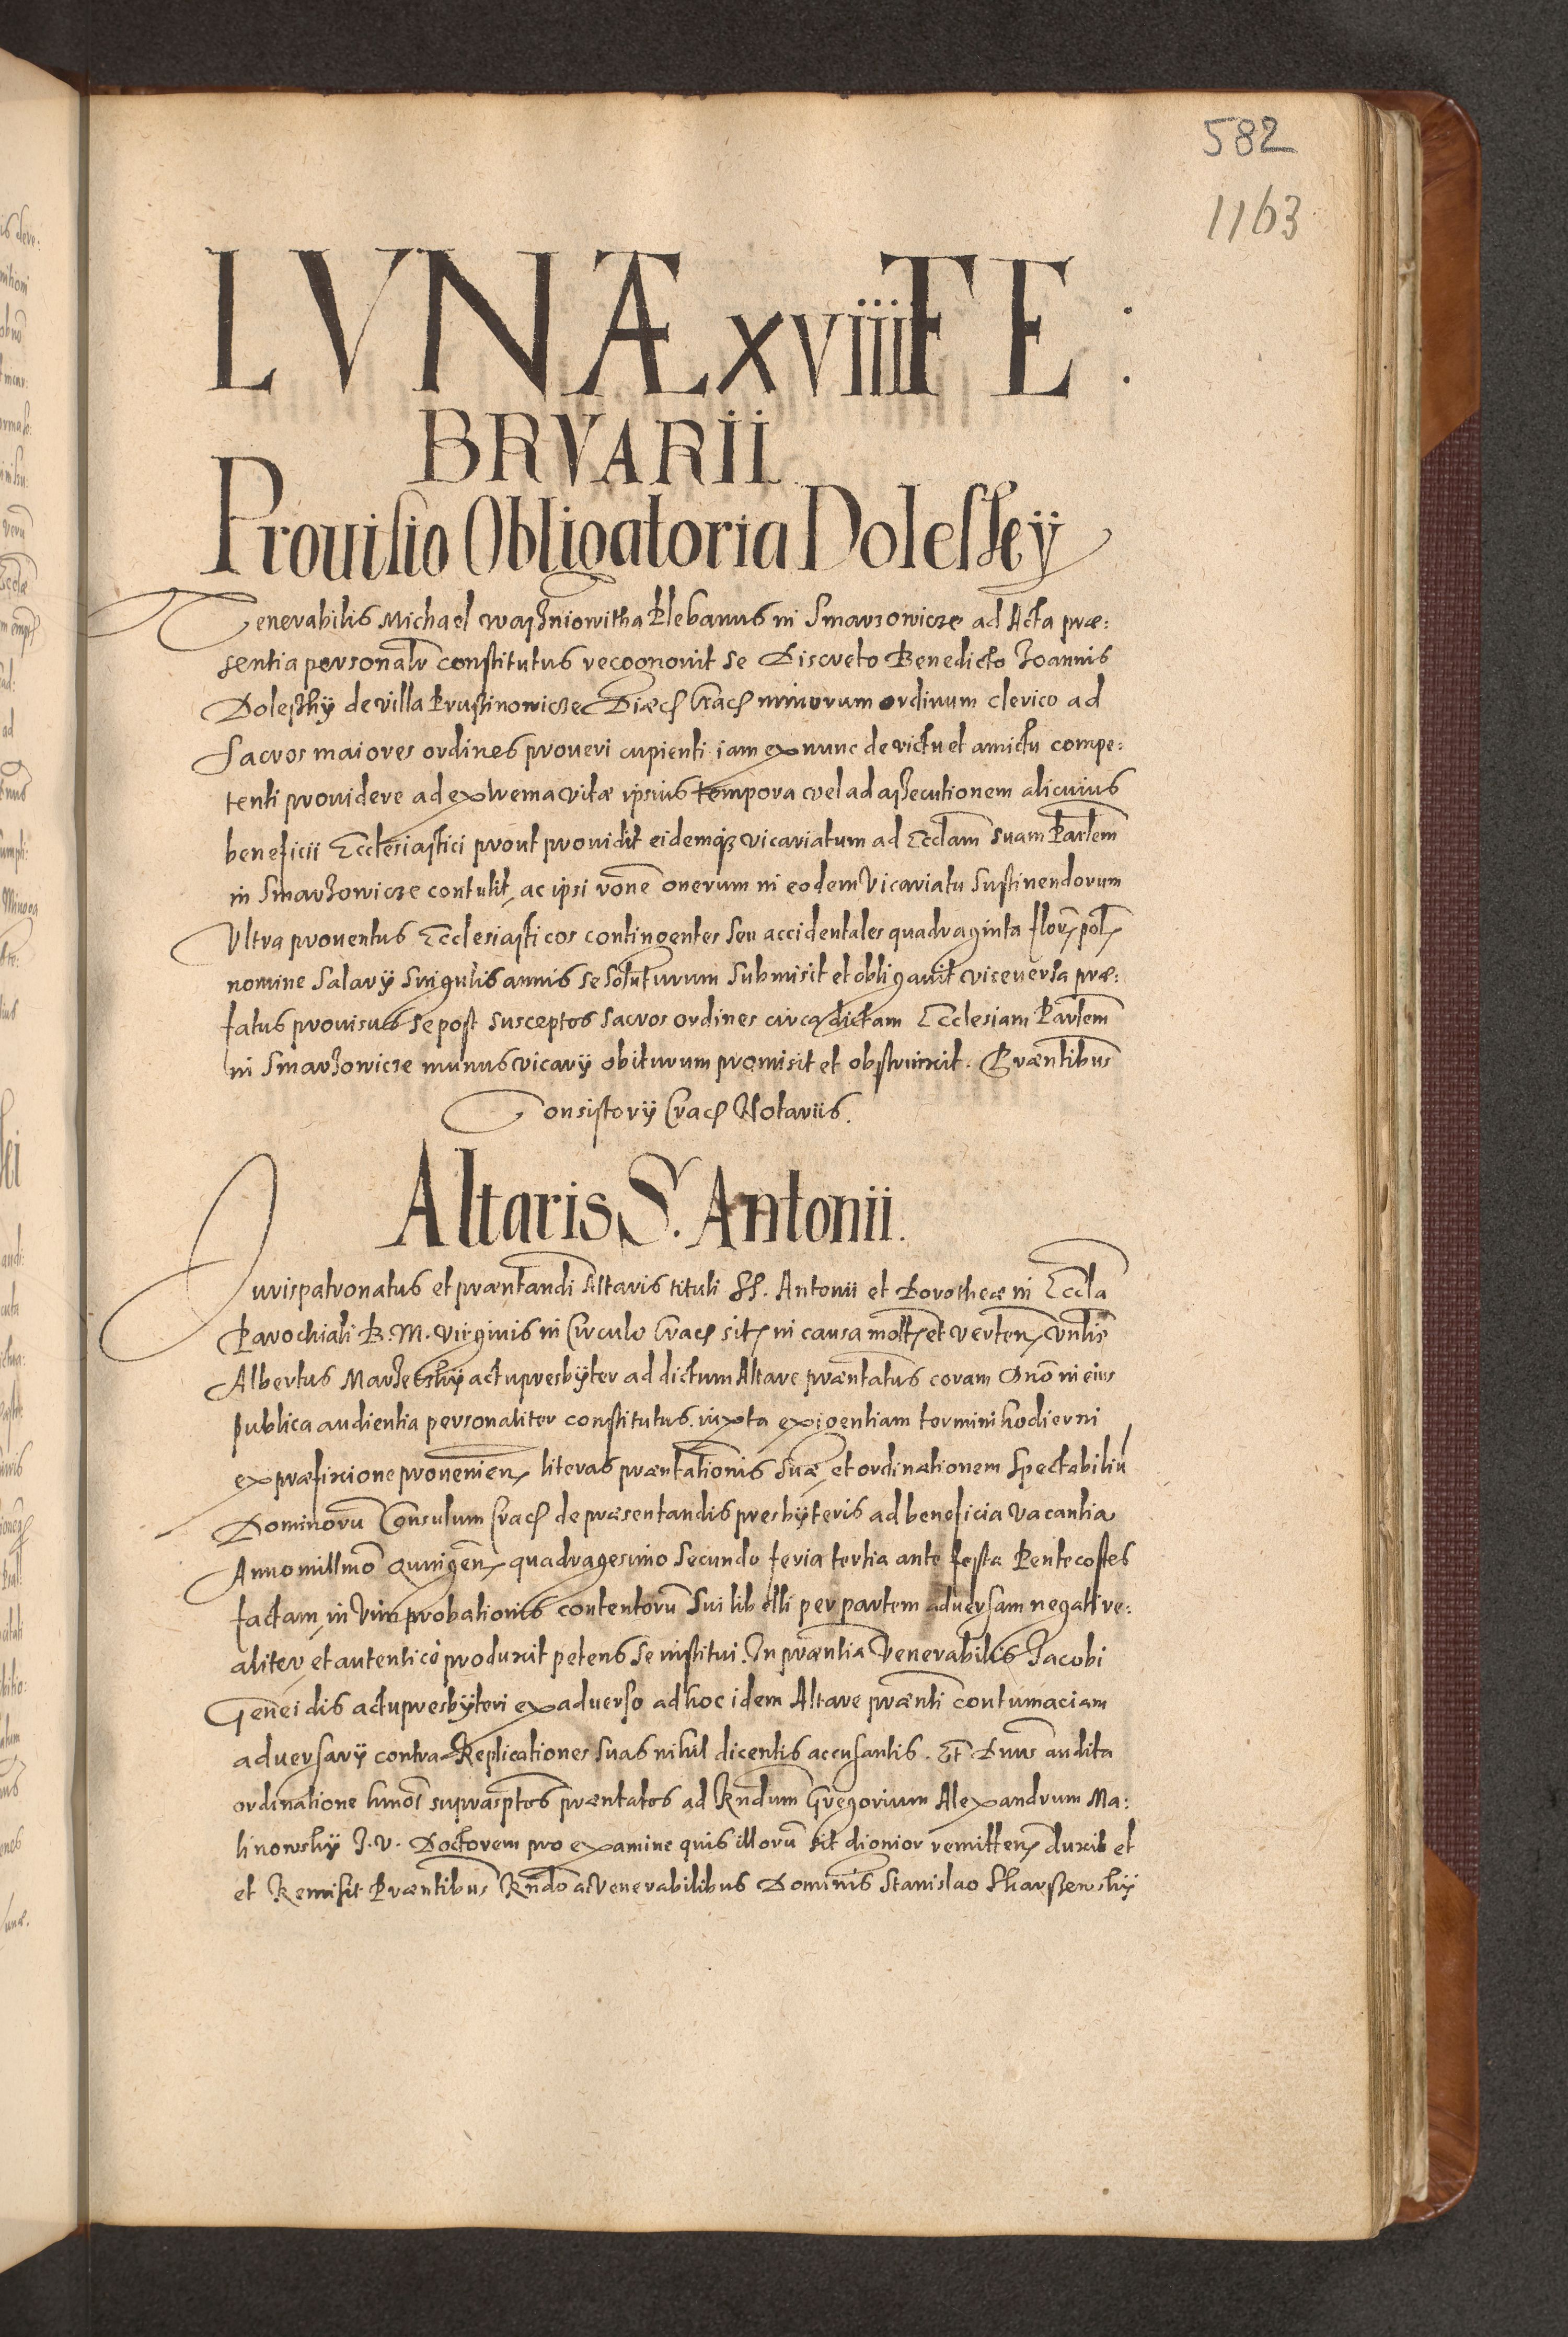 582
1163
LVNÆ xviiii FE:
BRVARII
Prouisio Obligatoria Dolesſkÿ
Venerabilis Michael waszniowitha Plebanus in Smarzowicze ad Acta præ:
sentia personalr̄ constitutus recognouit se Discreto Benedicto Joannis
Doleszkÿ de villa Prussinowicze Diæc̄ Crac̄ minorum ordinum clerico ad
sacros maiores ordines proueri cupienti iam ex nunc de victu et amictu compe:
tenti prouidere ad extrema vitæ ipsius tempora vel ad assecutionem alicuius
beneficii Ecclesiastici prout prouidit eidemq3 vicariatum ad Ecclām suam Parlem̄
in Smarzowicze contulit, ac ipsi rōne onerum in eodem Vicariatu sustinendorum
Vltra prouentus Ecclesiasticos contingentes seu accidentales quadraginta flor̄ pol̄
nomine salarÿ singulis annis se soluturum submisit et obligauit viceuersa præ:
fatus prouisus se post susceptos sacros ordines circa dictam Ecclesiam Parlem̄
in Smarzowicze munus vicarÿ obiturum promisit et obstrinxit. Præntibus
Consistorÿ Crac̄ Notariis.
Altaris S. Antonii.
Jurispatronatus et præntandi Altaris tituli SS. Antonii et Dorotheæ in Eccla
Parochiali B. M. Virginis in Circulo Crac̄ sit̄ in causa mot̄ et verten̄ Vnlis
Albertus Marzewskÿ actupresbÿter ad dictum Altare præntatus coram Dno in eius
publica audientia personaliter constitutus iuxta exigentiam termini hodierni
ex præfixione prouenien̄ literas præntationis suæ, et ordinationem Spectabiliū
Dominorū Consulum Crac̄ de præsentandis presbÿteris ad beneficia vacantia
Anno millmo Quingen̄ quadragesimo secundo feria tertia ante festa Pentecostes
factam, in vim probationis contentorū sui libelli per partem aduersam negati re:
aliter, et autentice produxit petens se institui. In præntia Venerabilis Jacobi
Geneidis actupresbÿteri ex aduerso ad hoc idem Altare prænti contumaciam
aduersarÿ contra Replicationes suas nihil dicentis accusantis. Et Dnus audita
ordinatione hmoi suprascptos præntatos ad Rndum Gregorium Alexandrum Ma:
linowskÿ J. V. Doctorem pro examine quis illorū sit dignior remitten̄ duxit et
et Remisit Præntibus Rndo ac Venerabilibus Dominis Stanislao Skarszewskÿ